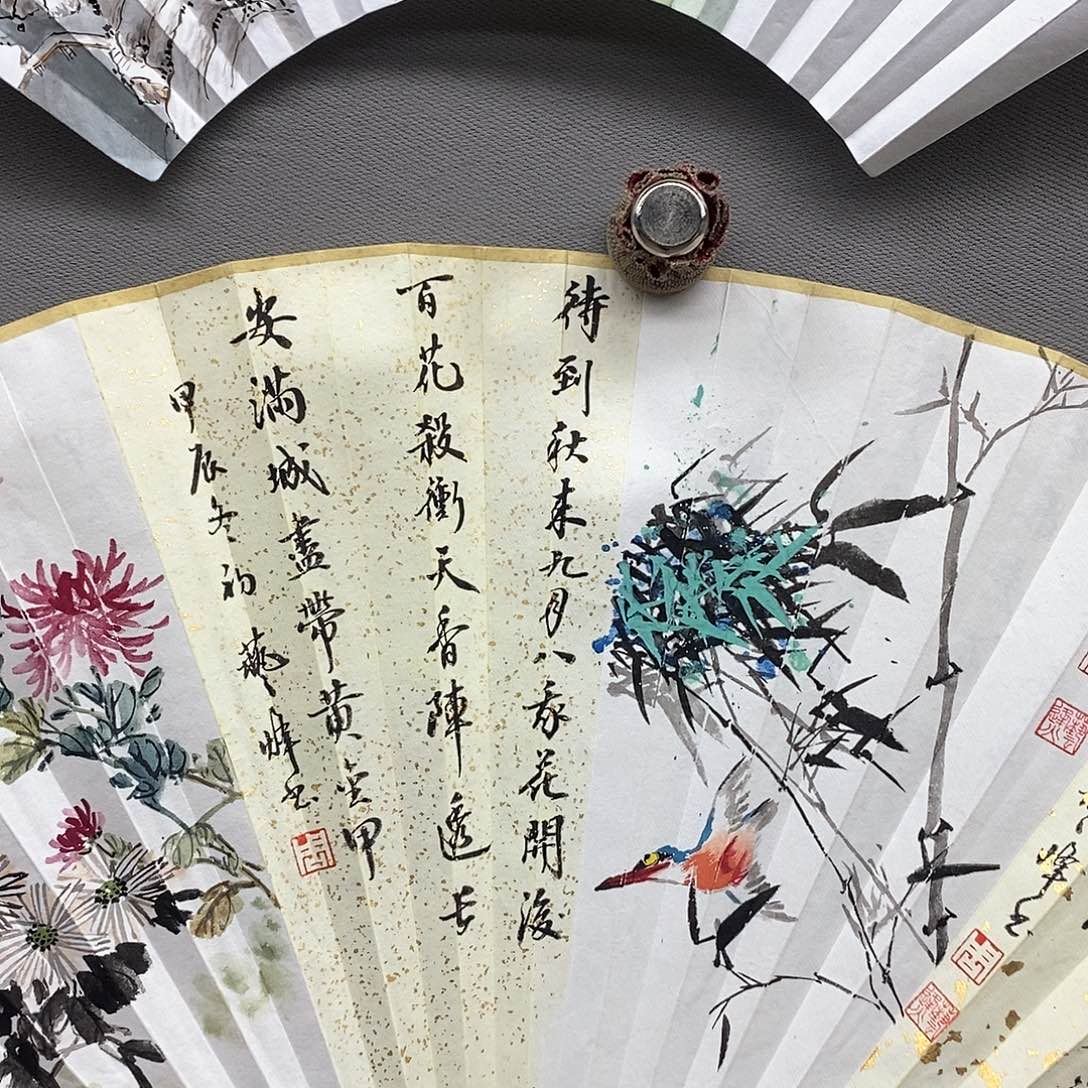 待到秋来九月八我花開後
百花殺衝天香陣透長
安滿城盡帶黄金甲
甲辰冬初藝书